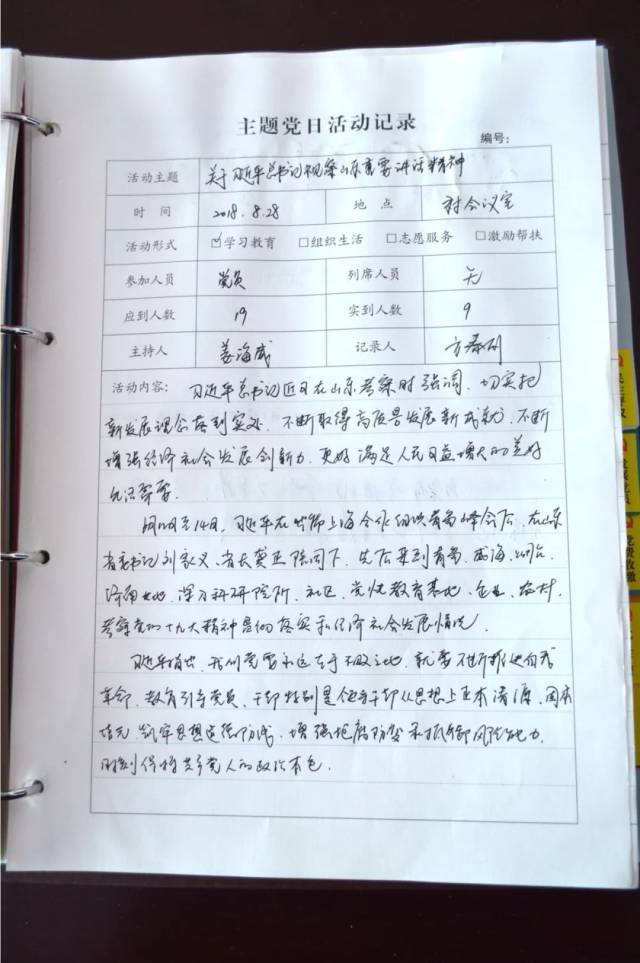 主题党日活动记录
编号：
活动主题 关于习近平总书记视察山东重要讲话精神
时 间 2018.8.28 地 点 村会议室
活动形式 ☑学习教育 □组织生活 □志愿服务 □激励帮扶
参加人员 党员 列席人员 无
应到人数 19 实到人数 9
主持人 姜海威 记录人
活动内容：习近平总书记近日在山东考察时强调，切实把
新发展理念落到实处，不断取得高质量发展新成就，不断
增强经济社会发展创新力，更好满足人民日益增长的美好
生活需要。
6月12日至14日，习近平在出席上海合作组织青岛峰会后，在山东
省委书记刘家义、省长龚正陪同下，先后来到青岛、威海、烟台、
济南等地，深入科研院所、社区、党性教育基地、企业、农村，
考察党的十九大精神贯彻落实和经济社会发展情况。
习近平指出，我们党要永远立于不败之地，就要不断推进自我
革命，教育引导党员、干部特别是领导干部从思想上正本清源、固本
培元，筑牢思想道德防线，增强拒腐防变和抵御风险能力，
时刻保持共产党人的政治本色。